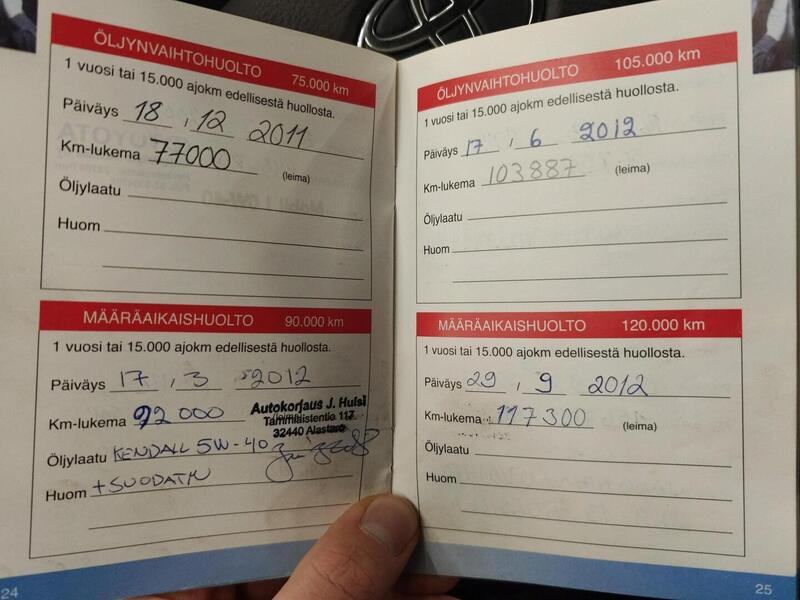 ÖLJYNVAIHTOHUOLTO 75.000 km
1 vuosi tai 15.000 ajokm edellisestä huollosta.
Päiväys 18 , 12 2011
Km-lukema 77000 (leima)
Öljylaatu
Huom
MÄÄRÄAIKAISHUOLTO 90.000 km
1 vuosi tai 15.000 ajokm edellisestä huollosta.
Päiväys 17 , 3 2012
Km-lukema 92 000 (leima)
Autokorjaus J. Hulsi
Tammiaistentie 117
32440 Alastaro
Öljylaatu KENDALL 5W-40
Huom +SUODATIN
24
ÖLJYNVAIHTOHUOLTO 105.000 km
1 vuosi tai 15.000 ajokm edellisestä huollosta.
Päiväys 17 , 6 2012
Km-lukema 103887 (leima)
Öljylaatu
Huom
MÄÄRÄAIKAISHUOLTO 120.000 km
1 vuosi tai 15.000 ajokm edellisestä huollosta.
Päiväys 29 , 9 2012
Km-lukema 117300 (leima)
Öljylaatu
Huom
25